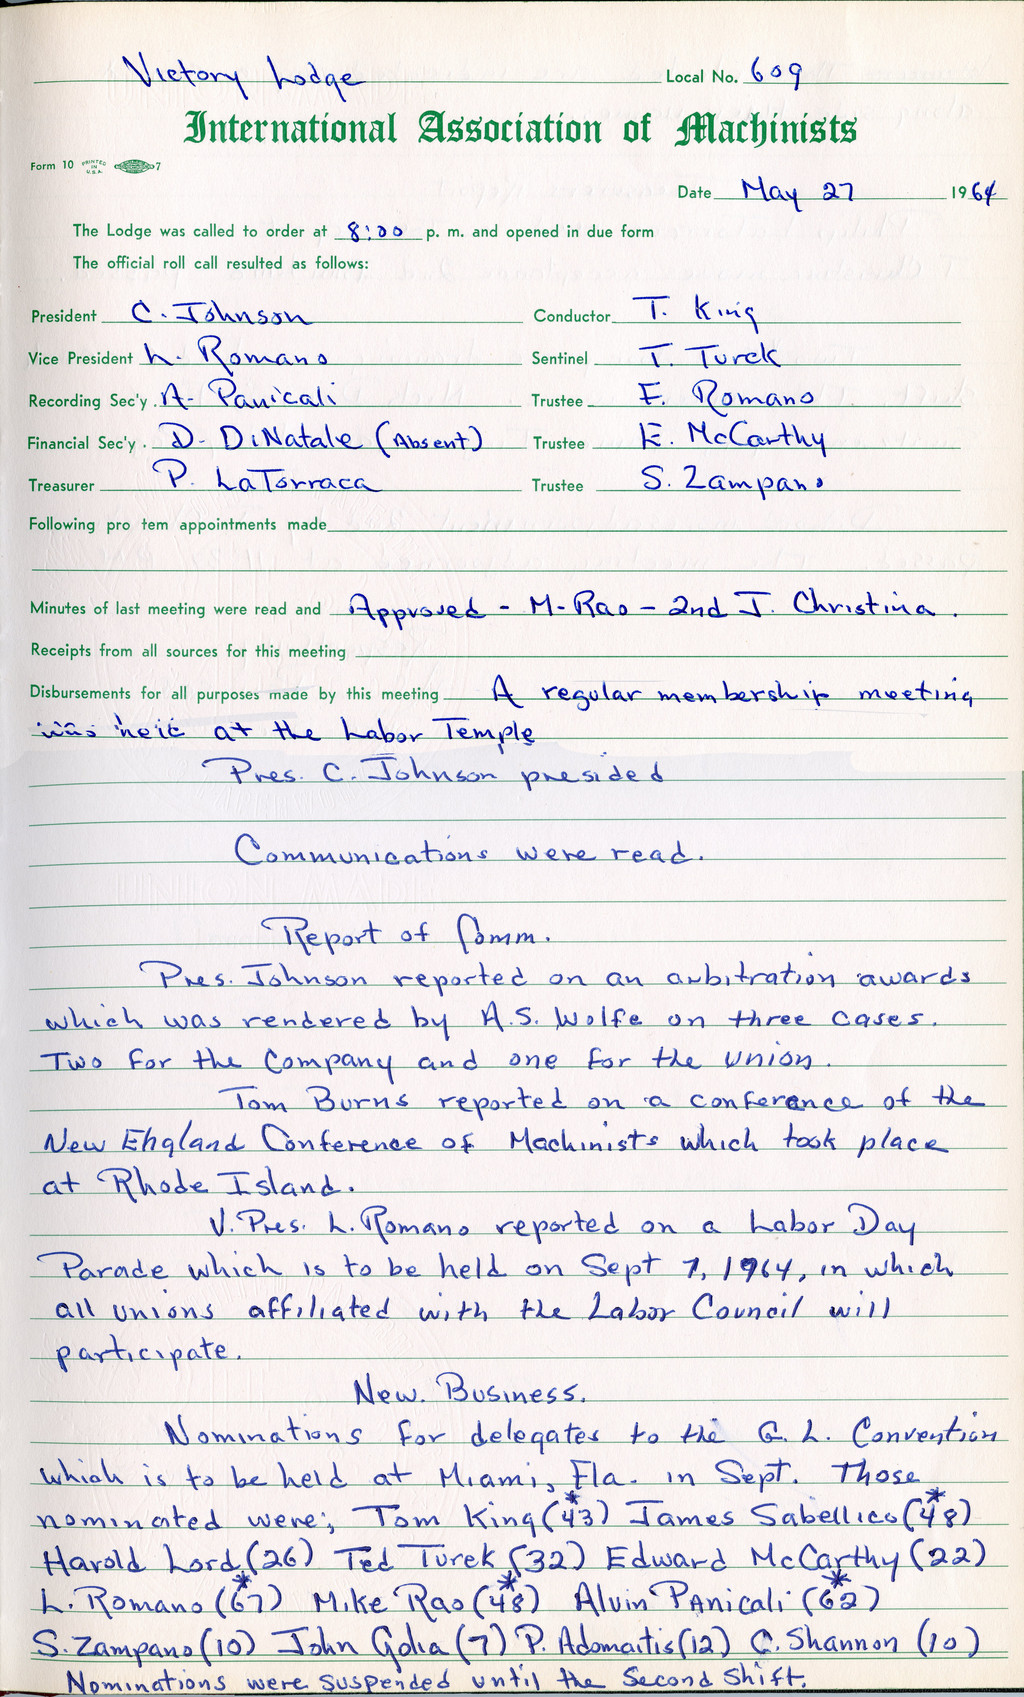 Victory Lodge Local No. 609
International Association of Machinists
Form 10 PRINTED IN U.S.A. 7
Date May 27 1964
The Lodge was called to order at 8:00 p. m. and opened in due form
The official roll call resulted as follows:
President C. Johnson Conductor T. King
Vice President L. Romano Sentinel T. Turek
Recording Sec'y. A. Panicali Trustee F. Romano
Financial Sec'y. D. DiNatale (Absent) Trustee E. McCarthy
Treasurer P. LaTorraca Trustee S. Zampano
Following pro tem appointments made
Minutes of last meeting were read and Approved - M-Rao - 2nd J. Christina.
Receipts from all sources for this meeting
Disbursements for all purposes made by this meeting A regular membership meeting
was held at the Labor Temple
Pres. C. Johnson presided
Communications were read.
Report of Comm.
Pres. Johnson reported on an arbitration awards
which was rendered by A.S. Wolfe on three cases.
Two for the Company and one for the Union.
Tom Burns reported on a conference of the
New England Conference of Machinists which took place
at Rhode Island.
V. Pres. L. Romano reported on a Labor Day
Parade which is to be held on Sept 7, 1964, in which
all unions affiliated with the Labor Council will
participate.
New. Business.
Nominations for delegates to the G. L. Convention
which is to be held at Miami, Fla. in Sept. Those
nominated were; Tom King (43)* James Sabellico (48)*
Harold Lord (26) Ted Turek (32) Edward McCarthy (22)
L. Romano (67)* Mike Rao (48)* Alvin Panicali (62)*
S. Zampano (10) John Golia (7) P. Adomaitis (12) C. Shannon (10)
Nominations were suspended until the Second Shift.